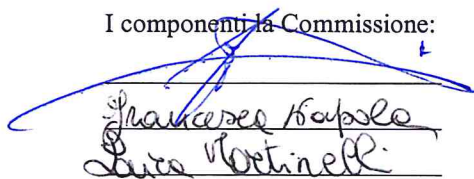 I componenti la Commissione:
Francesca Napola
Luisa Martinelli